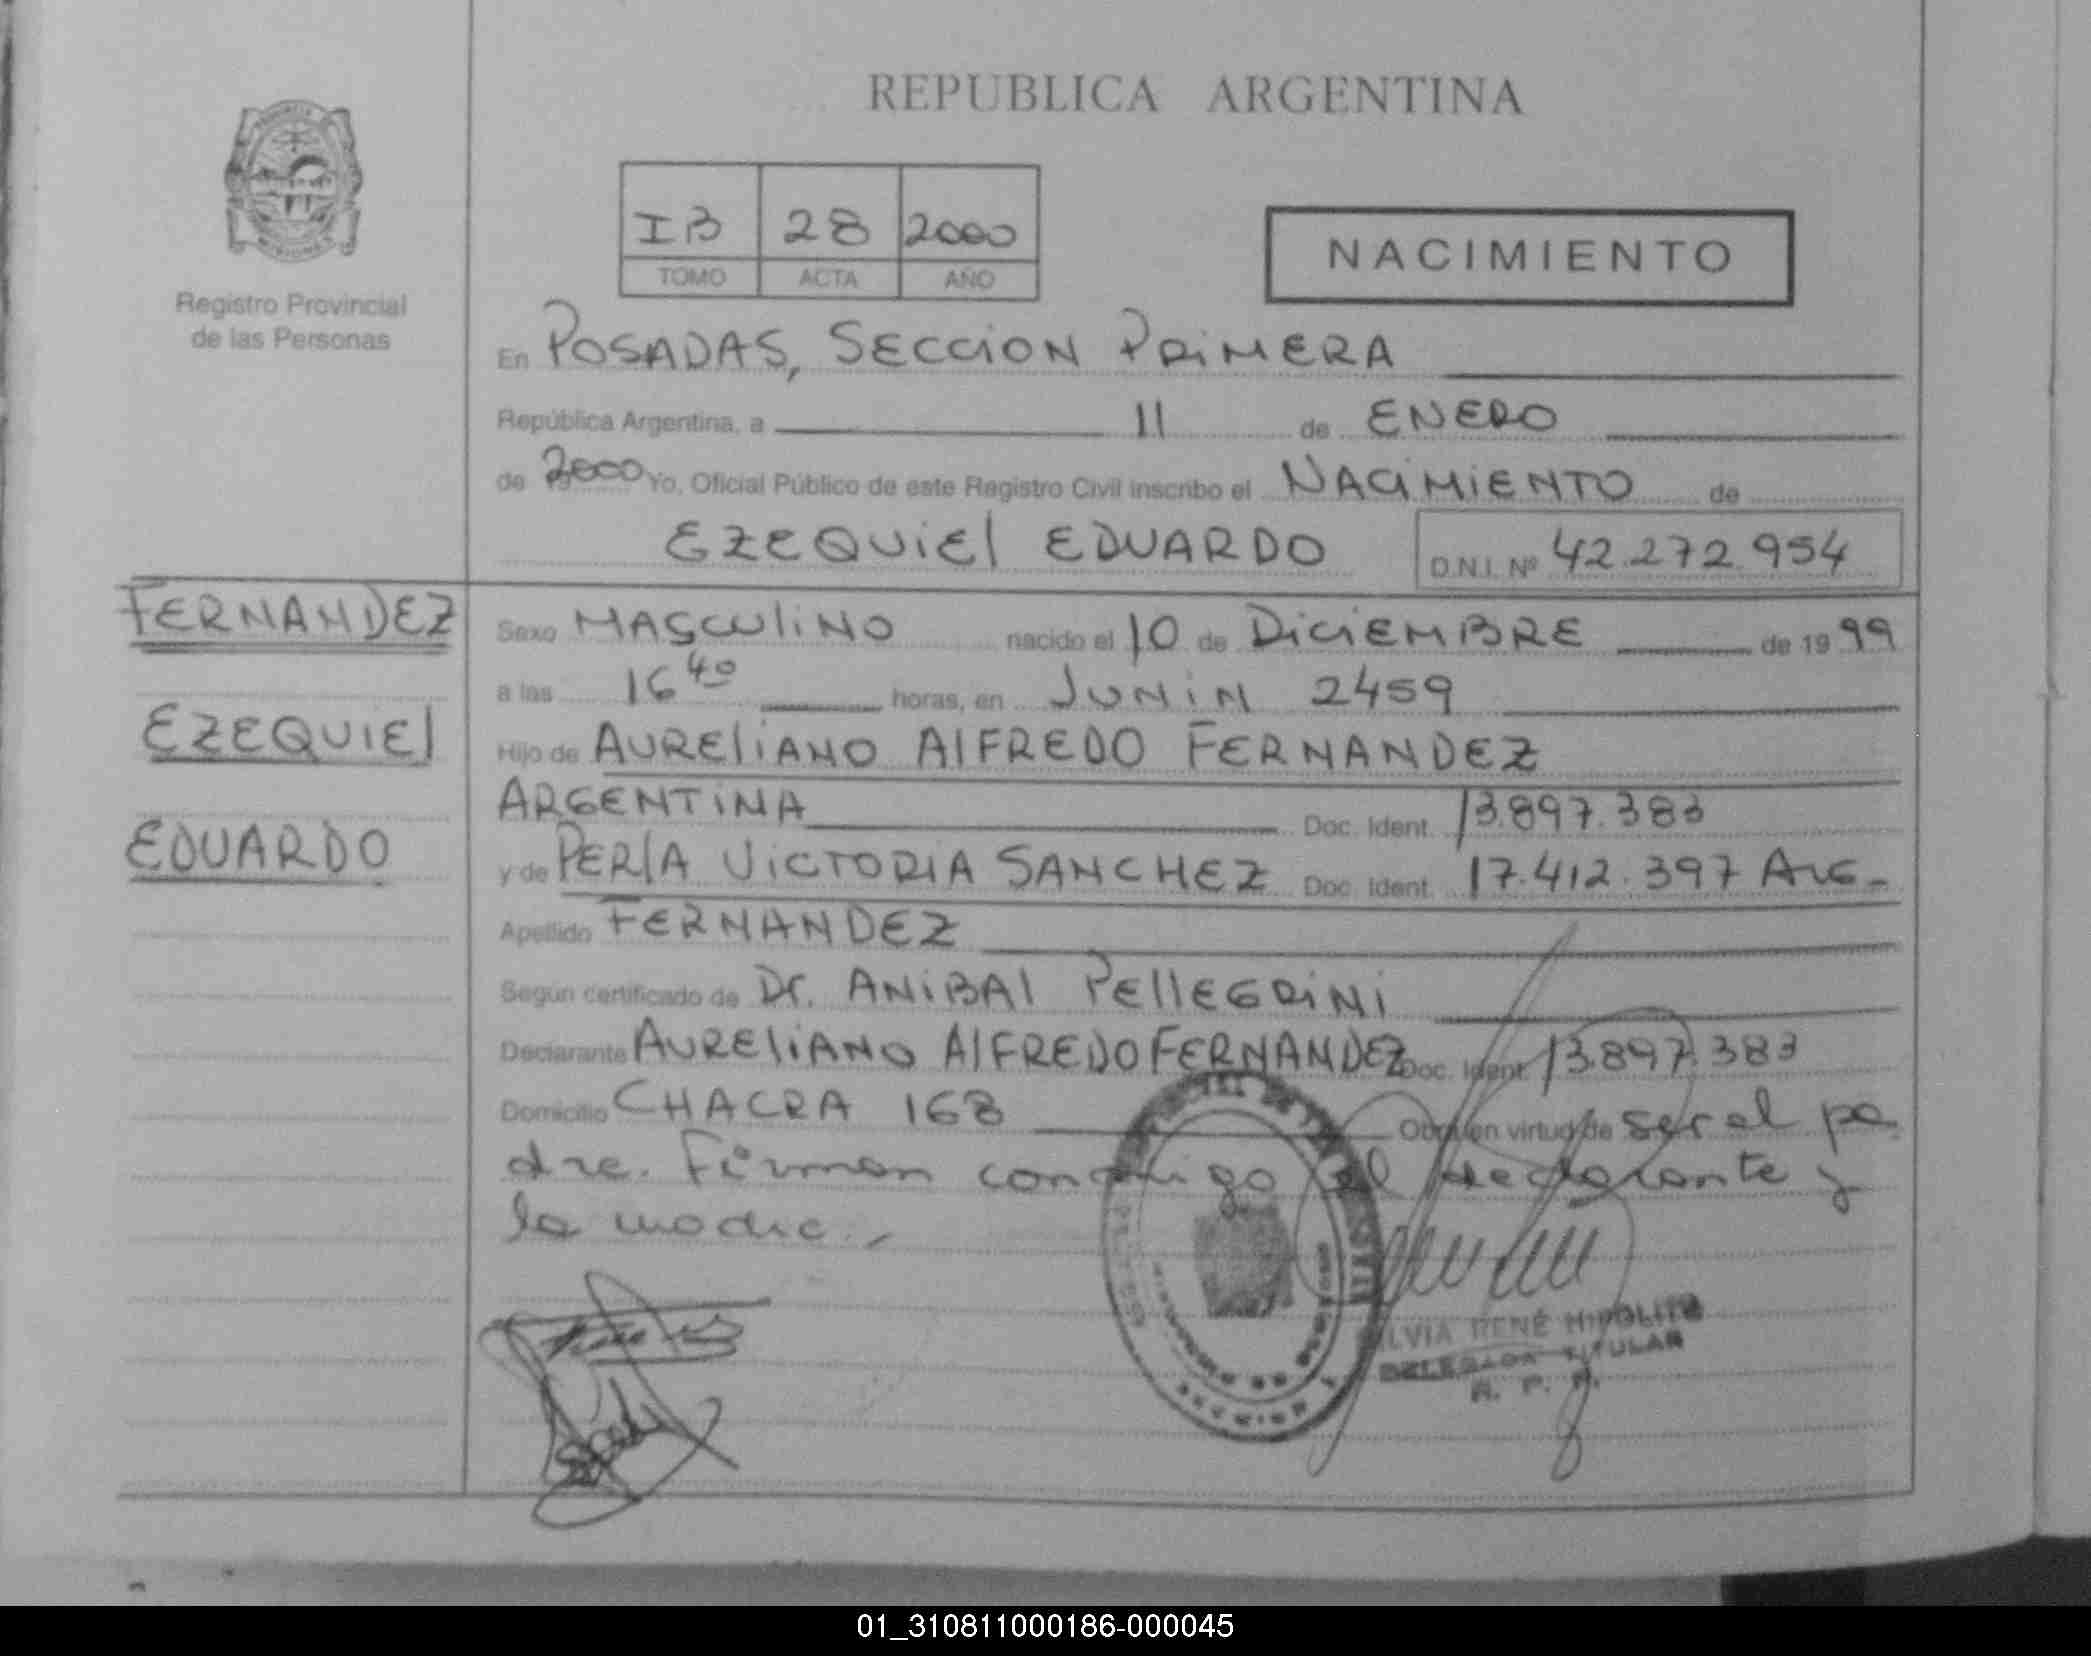 REPUBLICA ARGENTINA
Registro Provincial
de las Personas
IB 28 2000
TOMO ACTA AÑO
NACIMIENTO
En POSADAS, SECCION PRIMERA
República Argentina, a 11 de ENERO
de 2000 Yo, Oficial Público de este Registro Civil inscribo el NACIMIENTO de
EZEQUIEL EDUARDO D.N.I. Nº 42.272.954
FERNANDEZ
EZEQUIEL
EDUARDO
Sexo MASCULINO nacido el 10 de DICIEMBRE de 19 99
a las 16 40 horas, en JUNIN 2459
Hijo de AURELIANO ALFREDO FERNANDEZ
ARGENTINA Doc. Ident. 13.897.383
y de PERLA VICTORIA SANCHEZ Doc. Ident. 17.412.397 ARG-
Apellido FERNANDEZ
Según certificado de Dr. ANIBAL PELLEGRINI
Declarante AURELIANO ALFREDO FERNANDEZ Doc. Ident. 13.897.383
Domicilio CHACRA 168 Obra en virtud de ser el pa
dre. Firman conmigo el declarante y
la madre.-
SILVIA RENÉ HIPOLITO
DELEGADA TITULAR
R. P. P.
01_310811000186-000045